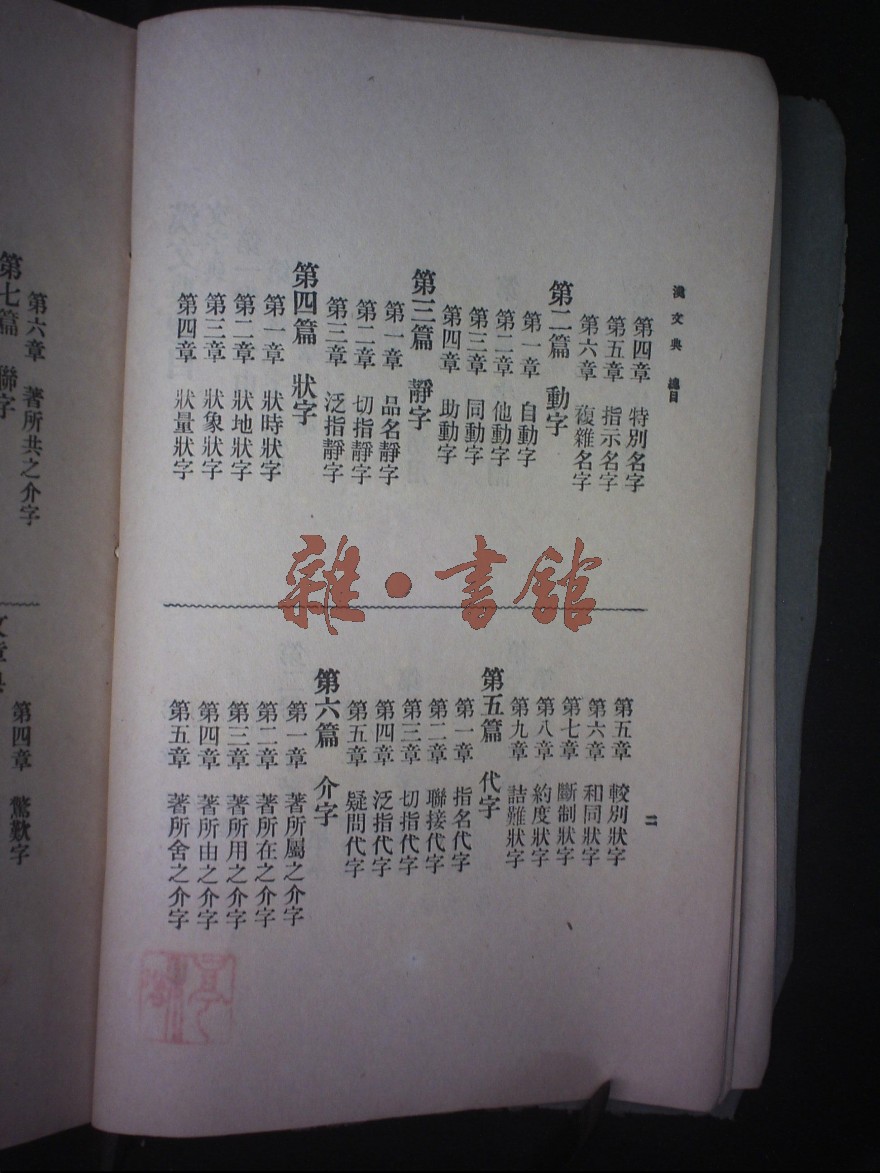 漢文典 總目
二
第四章 特別名字
第五章 指示名字
第六章 複雜名字
第二篇 動字
第一章 自動字
第二章 他動字
第三章 同動字
第四章 助動字
第三篇 靜字
第一章 品名靜字
第二章 切指靜字
第三章 泛指靜字
第四篇 狀字
第一章 狀時狀字
第二章 狀地狀字
第三章 狀象狀字
第四章 狀量狀字
雜・書館
第五章 較別狀字
第六章 和同狀字
第七章 斷制狀字
第八章 約度狀字
第九章 詰難狀字
第五篇 代字
第一章 指名代字
第二章 聯接代字
第三章 切指代字
第四章 泛指代字
第五章 疑問代字
第六篇 介字
第一章 著所屬之介字
第二章 著所在之介字
第三章 著所用之介字
第四章 著所由之介字
第五章 著所舍之介字
第六章 著所共之介字
第七篇 聯字
第四章 驚歎字